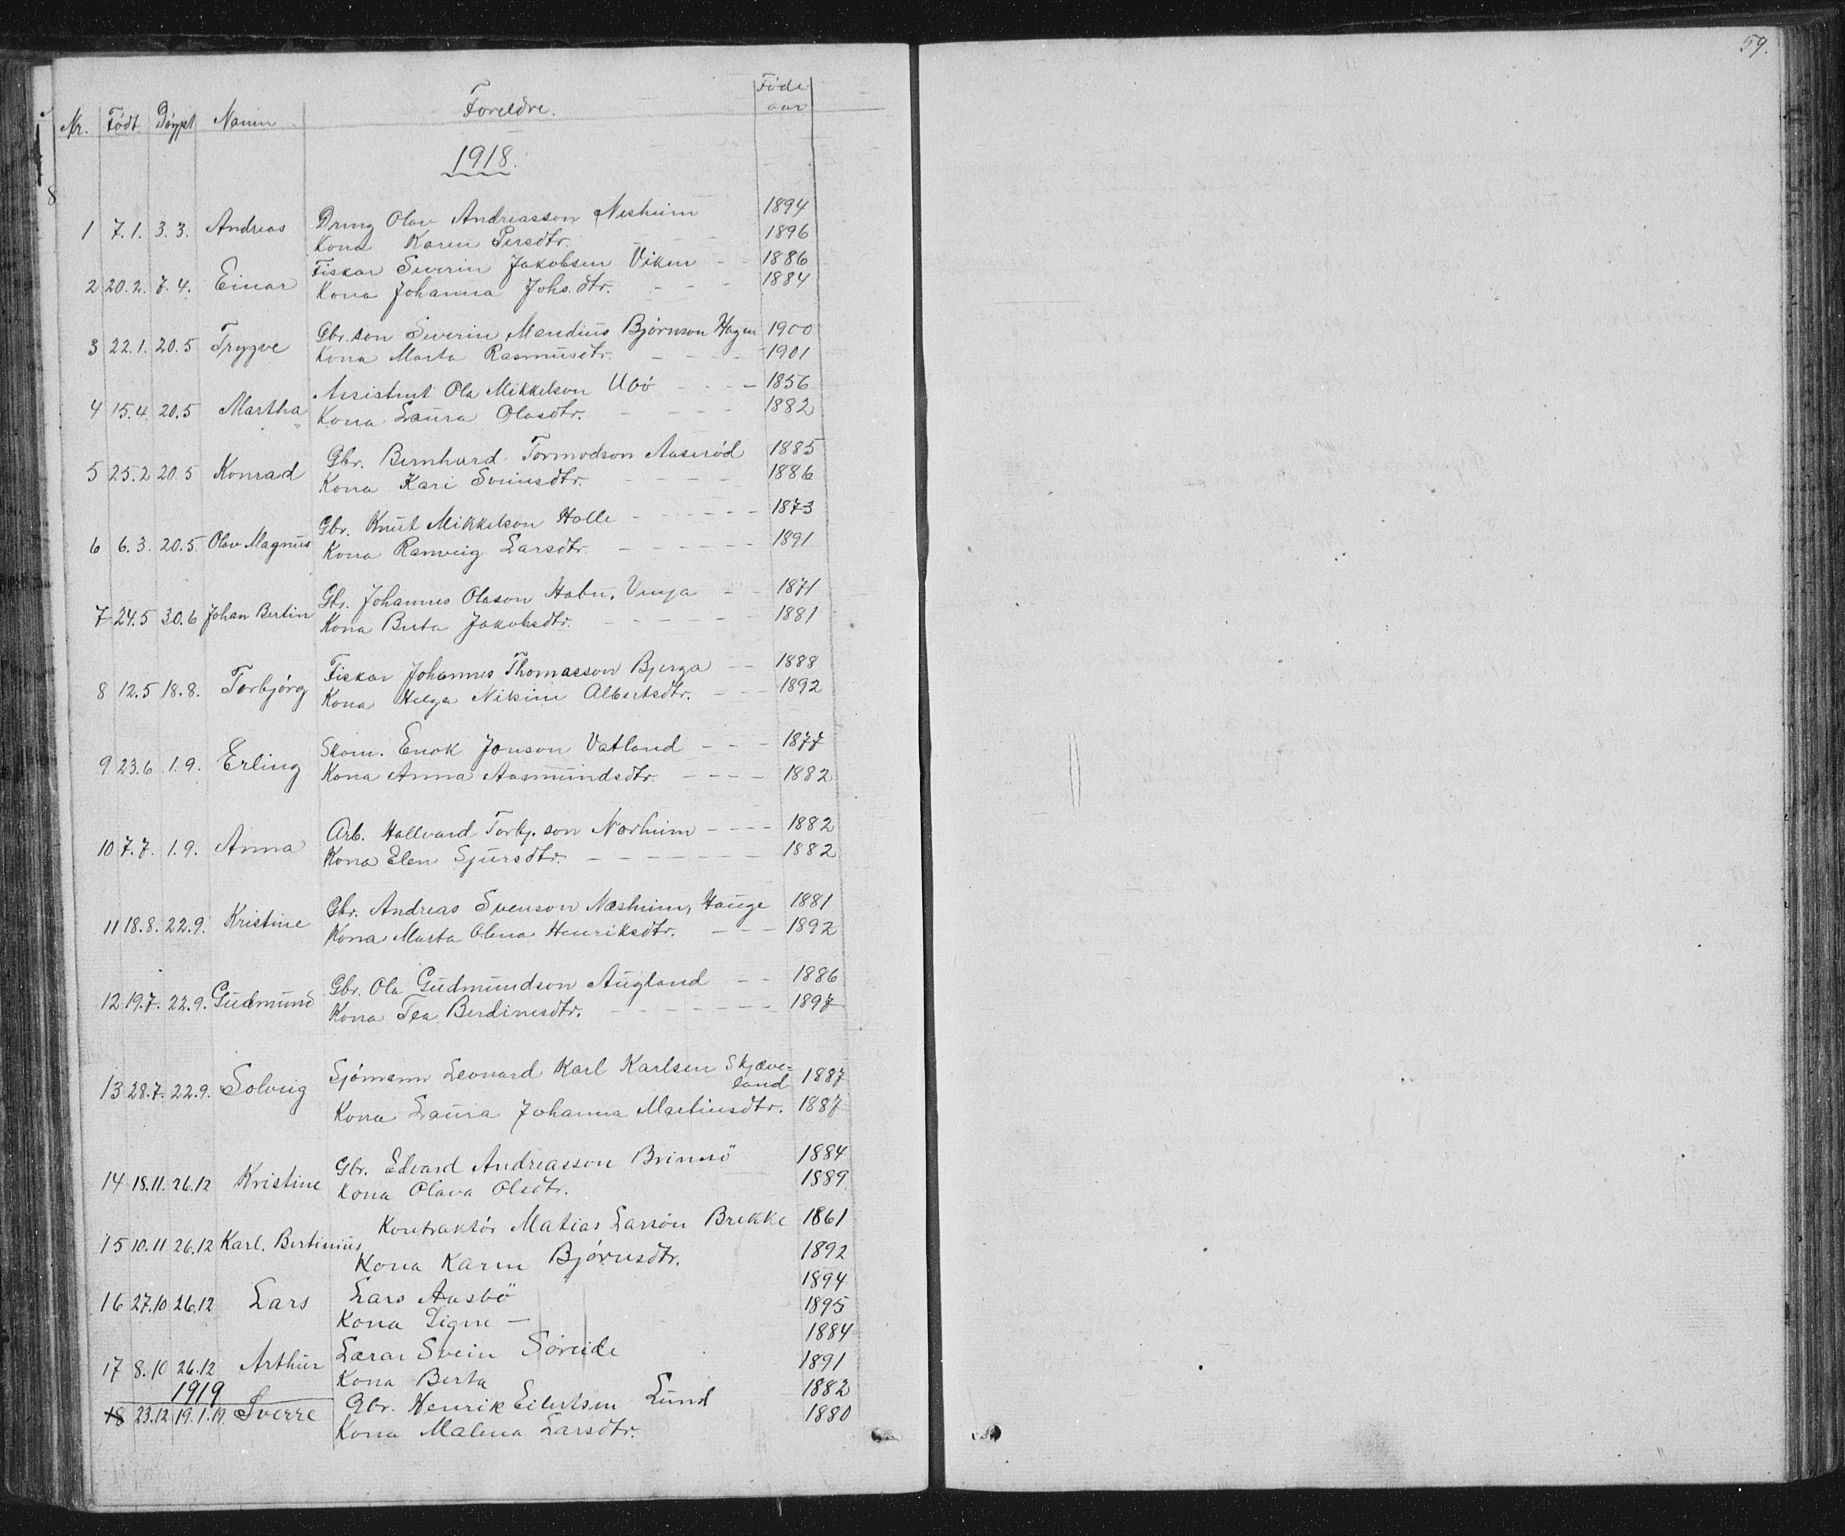 59.
Nr. Födt Döypt Namn Foreldre. Føde aar
1918.
1 7.1. 3.3. Andreas Dreng Olav Andreasson Nesheim 1894
Kona Karen Persdtr. 1896
2 20.2. 7.4. Einar Fiskar Severin Jakobsen Viken - - 1886
Kona Johanna Johs.dtr. - - - 1884
3 22.1. 20.5 Trygve Gbr.son Severin Mandius Bjørnson Hagen 1900
Kona Marta Rasmusdtr. - - - - 1901
4 15.4. 20.5 Martha Assistent Ola Mikkelson Ubö - - - - 1856
Kona Laura Olasdtr. - - - - 1882
5 25.2 20.5 Konrad Gbr. Bernhard Tormodson Aaseröd 1885
Kona Kari Sveinsdtr. - - - - 1886
6 6.3. 20.5. Olav Magnus Gbr. Knut Mikkelson Holle - - - - - - 1873
Kona Ranveig Larsdtr. - - - - - - 1891
7 24.5 30.6 Johan Bertin Gbr. Johannes Olason Habn, Venja - - 1871
Kona Berta Jakobsdtr. - - - - - - 1881
8 12.5 18.8. Torbjørg Fiskar Johannes Thomasson Bjerga - - 1888
Kona Helga Nikine Albertsdtr. - - - 1892
9 23.6 1.9. Erling Skom. Enok Jonson Vatland - - - 1877
Kona Anna Aasmundsdtr. - - - - 1882
10 7.7. 1.9. Anna Arb. Hallvard Torbj.son Norheim - - - - 1882
Kona Elen Sjursdtr. - - - - - - - 1882
11 18.8. 22.9. Kristine Gbr. Andreas Svenson Næsheim, Hauge 1881
Kona Marta Olena Henriksdtr. - - - 1892
12 19.7. 22.9. Gudmund Gbr. Ola Gudmundson Augland - - 1886
Kona Tea Berdinesdtr. - - - - - - - 1897
13 28.7. 22.9. Solveig Sjömann Leonard Karl Karlsen Skjæve-
land 1887
Kona Laura Johanna Martinsdtr. 1887
14 18.11. 26.12 Kristine Gbr. Edvard Andreasson Brimsö 1884
Kona Olava Olsdtr. 1889
15 10.11 26.12 Karl, Bertinius Kontraktör Matias Larson Brekke 1861
Kona Karen Bjørnsdtr. 1892
16 27.10 26.12 Lars Lars Aasbö 1894
Kona Signe - 1895
17 8.10 26.12 Arthur Lærar Svein Söreide 1884
Kona Berta 1891
1919
18 23.12 19.1.19. Sverre Gbr. Henrik Eilertsen Lund 1882
Kona Malena Larsdtr. 1880